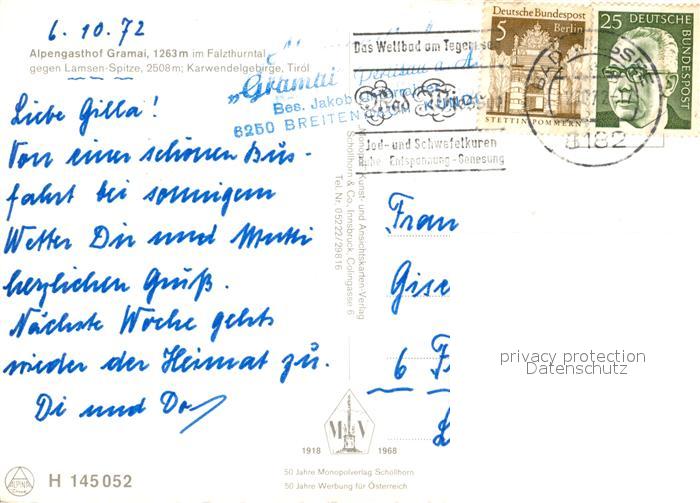 6.10.72
Alpengasthof Gramai, 1263 m im Falzthurntal
gegen Lamsen-Spitze, 2508 m; Karwendelgebirge, Tirol
Liebe Gilla!
Von einer schönen Bus-
fahrt bei sonnigem
Wetter Dir und Mutti
herzlichen Gruß.
Nächste Woche gehts
wieder der Heimat zu.
Di und Do
"Gramai
Bes. Jakob
6250 BREITEN
Das Weltbad am Tegernsee
Bad Wiessee
Jod- und Schwefelkuren
Ruhe - Entspannung - Genesung
5 Deutsche Bundespost
Berlin
STETTIN/POMMERN
25 DEUTSCHE
BUNDESPOST
BAD
8182
Monopol Kunst- und Ansichtskarten-Verlag
Schöllhorn & Co., Innsbruck, Colingasse 6
Tel. Nr. 05222/29816
Frau
Gise
6 F
privacy protection
Datenschutz
1918 MV 1968
50 Jahre Monopolverlag Schöllhorn
50 Jahre Werbung für Österreich
ALPINA
H 145052